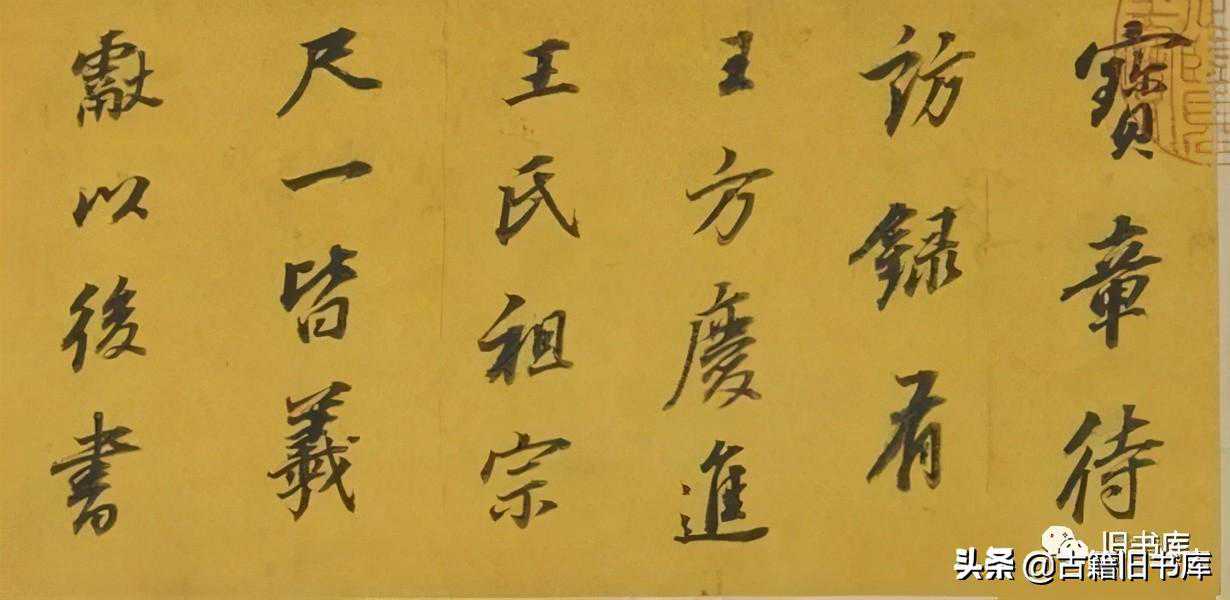 寶章待
訪録有
王方慶進
王氏祖宗
尺一皆羲
獻以後書
旧书库
头条 @古籍旧书库